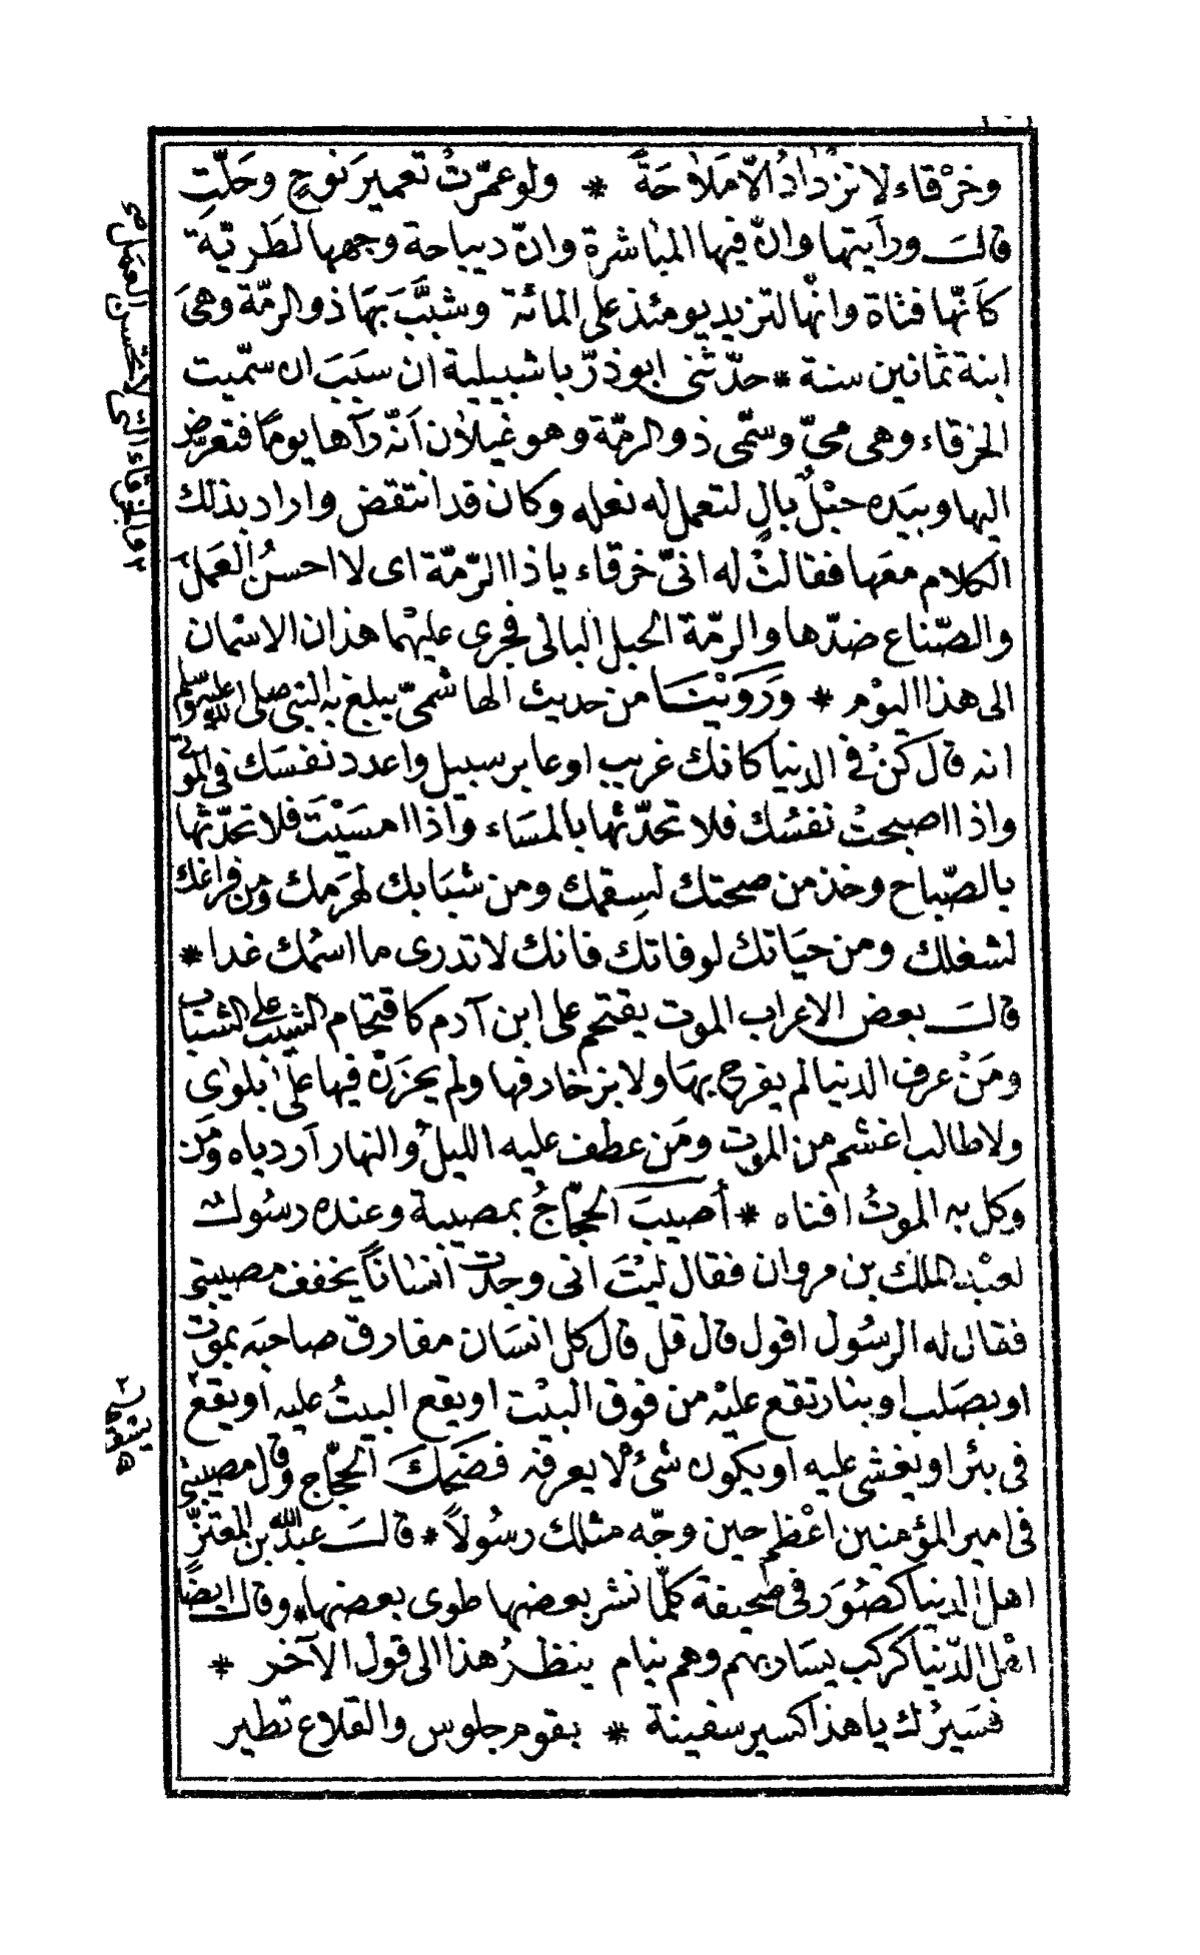 وخرْقاء لا تزْدادُ الّا مَلاوحَةً * ولو عمّرتْ تعمير نوحٍ وحَلّتِ
قالت ورأيتها وانّ فيها المباشرة وانّ ديباجة وجهها لطَريّة
كأنّها فتاة وانّها لتزيد يومئذ على المائة وشبَّبَ بهَا ذو الرمّة وهىَ
ابنة ثمانين سنة * حدّثنى ابوذرّ باشبيلية ان سبَبَ ان سمّيت
الخرقاء وهى مىّ وسمّى ذو الرمّة وهو غيلان انّه رآها يوماً فتعرّض
اليها وبيَده حبْلٌ بالٍ لتعمل له نعله وكان قد انتقض واراد بذلك
الكلام معَها فقالتْ له انىّ خرقاء يا ذا الرّمّة اى لا احسنُ العَمل
والصّناع ضدّها والرمّة الحبل البالى فجرى عليْهما هذان الاسْمان
الى هذا اليوْم * ورَوَيْنَا من حديث الهاشمىّ يبلغ به النبى صلى الله عليه وسلم
انه قال كنْ فى الدنيا كانك غريب او عابر سبيل واعدد نفسَك فى الموتى
واذا اصبحتْ نفسُك فلا تحدّثها بالمسَاء واذا امسَيْتَ فلا تحدّثها
بالصّباح وخذ من صحتك لسِقمك ومن شبَابك لهَرَمك ومن فراغك
لشغلك ومن حيَاتك لوفاتك فانك لا تدرى ما اسْمك غدا *
قالت بعض الاعراب الموت يقتحم على ابن آدم كاقتحام الشيب على الشباب
ومَنْ عرف الدنيا لم يفرح بهَا ولا بزخارفها ولم يحزَنْ فيها على بلوَى
ولا طالب اغشم من الموت ومَن عطف عليه الليلُ والنهار أردياه ومَن
وكل به الموتُ افناه * أصيبَ الحجّاجُ بمصيبة وعنده رسُول
لعبْد الملك بن مروان فقال ليْتَ انى وجدْت انسَاناً يخفف مصيبتى
فقال له الرسُول اقول قال قل قال كل انسَان مفارق صاحبَه بموْت
او بصَلب او بنار تقع عليْه من فوق البيْت او يقع البيتُ عليه او يقع
فى بئر او يغشى عليه او يكون شىءٌ لا يعرفه فضَحكَ الحجّاج وقال مصيبتى
فى امير المؤمنين اعْظم حين وجّه مثلك رسُولاً * قالت عبد الله بن المعتزّ
اهل الدنيا كصُوَر فى صحيفة كلّما نشر بعضها طوى بعضها * وقال ايضًا
اهْل الدّنيا كركب يسَار بهم وهم نيام ينظرُ هذا الى قول الآخر *
فسَيرُك يا هذا كسير سفينة * بقوم جلوس والقلاع تطير